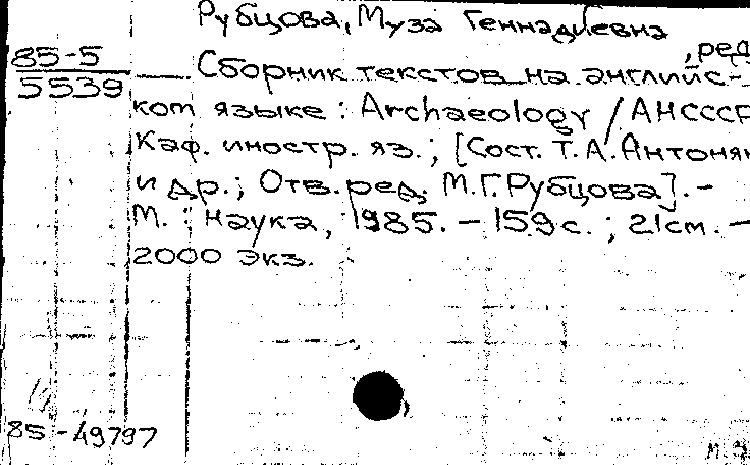 Рубцова, Муза Геннадиевна
, ред
85-5
5539
Сборник текстов на английс-
ком языке : Archaeology / АНСССР
Каф. иностр. яз. ; [Сост. Т.А. Антонян
и др.; Отв. ред. М.Г. Рубцова]. –
М. : Наука, 1985. – 159 с. ; 21 см. –
2000 экз.
85-49797